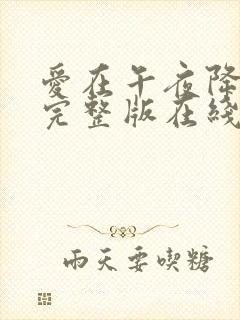 愛在午夜降
完整版在綫
雨天要喫糖